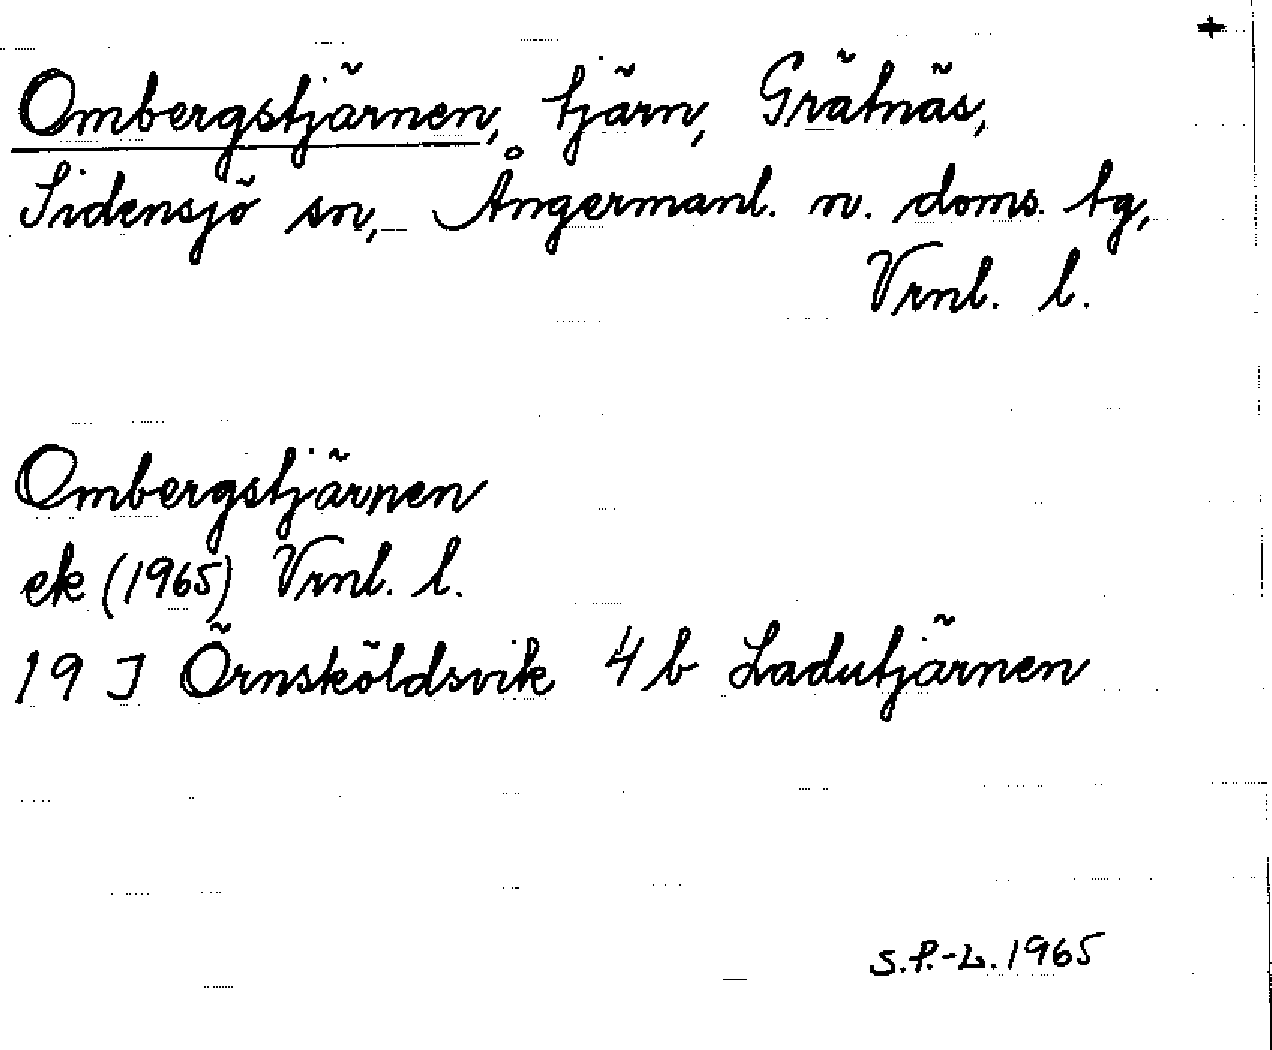 +
Ombergstjärnen, tjärn, Grätnäs,
Sidensjö sn, Ångermanl. n. doms. tg,
Vrnl. l.
Ombergstjärnen
ek (1965) Vrnl. l.
19 J Örnsköldsvik 4 b Ladutjärnen
S.P.-L. 1965